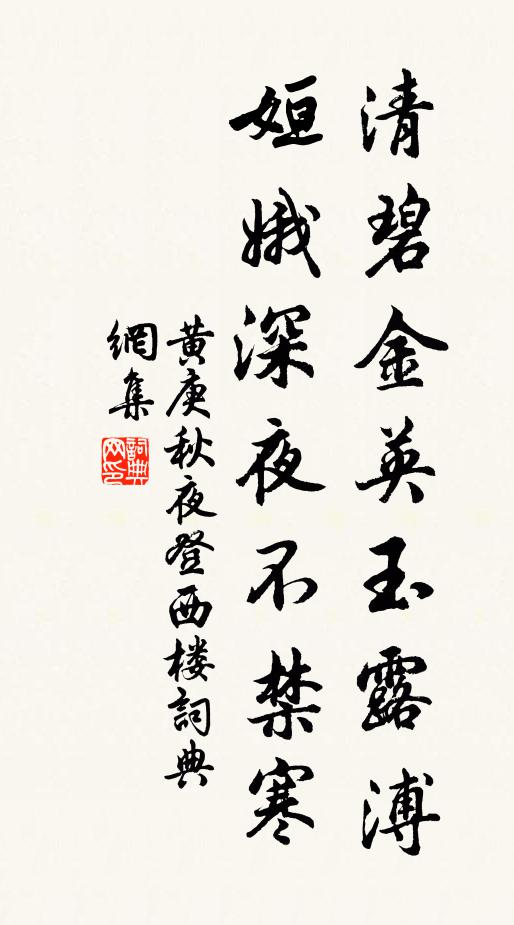 清碧金英玉露溥
姮娥深夜不禁寒
黄庚秋夜登西楼詞典
網集
詞典網印